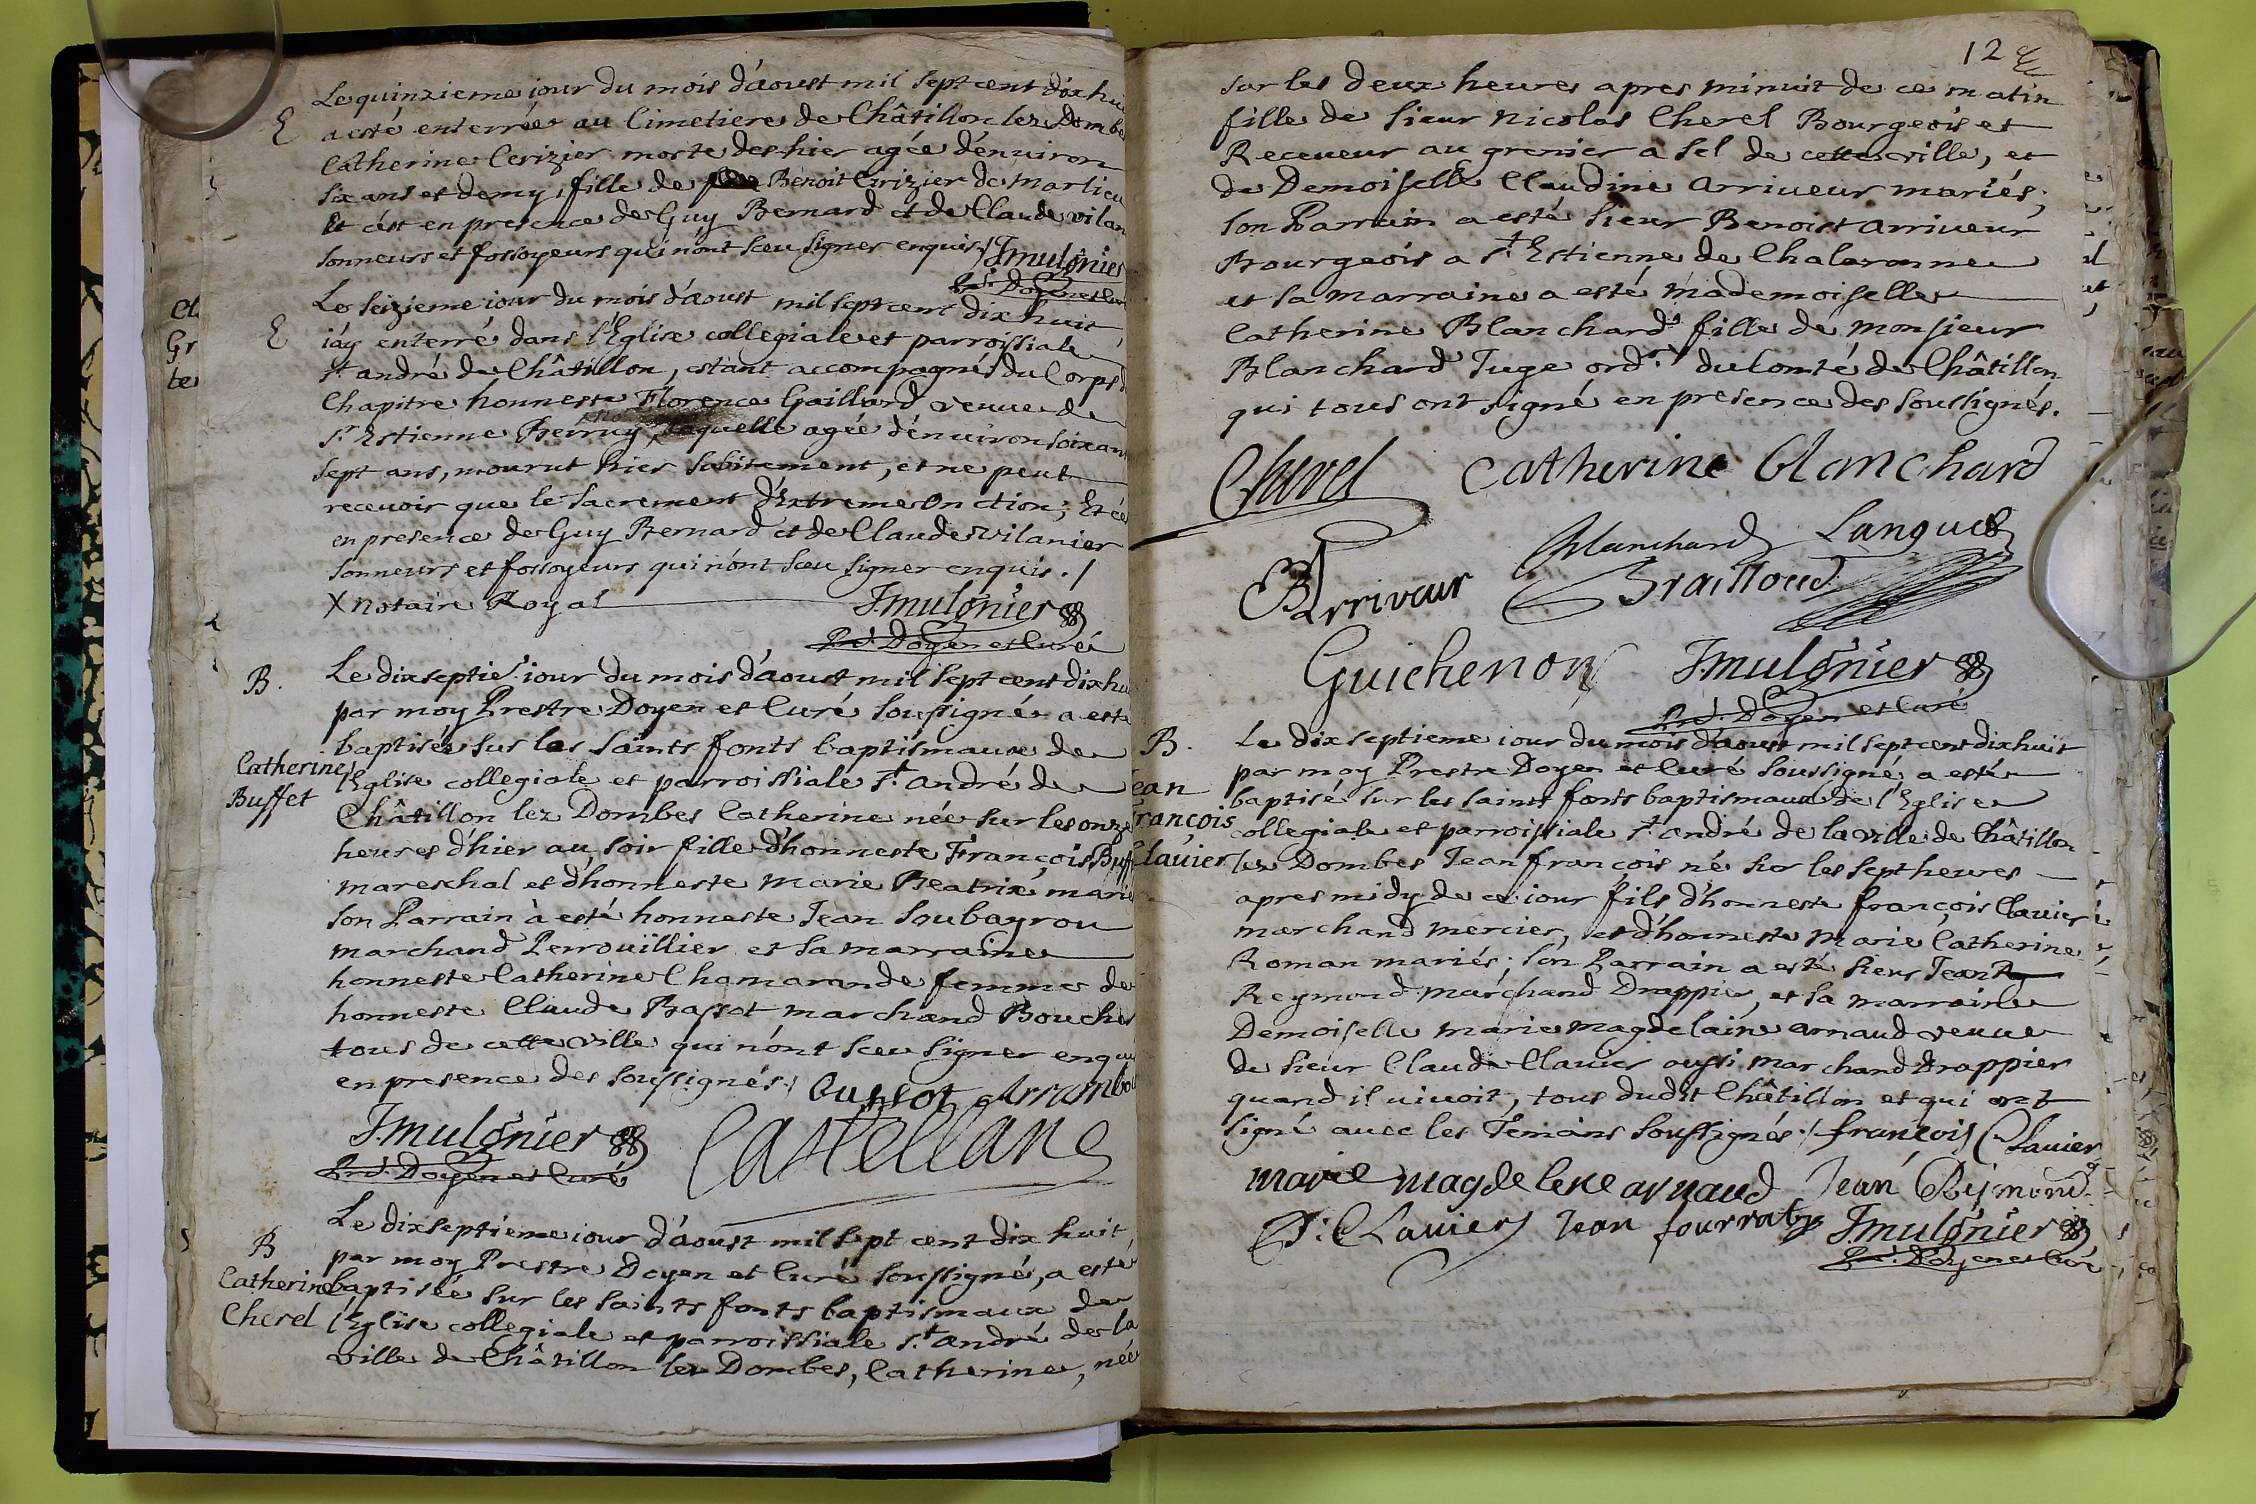 Le quinzieme iour du mois d'aoust mil sept cent dix hui
E
a esté enterrée au Cimetiere de Châtillon lez Dombe
Catherine Cerizier morte des hier agée d'enuiron
six ans et demy, fille de Benoit Cerizier de Marlieu
Et c'est en presence de Guy Bernard et de Claude vilan
sonneurs et fossoyeurs qui n'ont sceu signer enquis /
J mulonier
Pr. Doyen et Curé
Le seizieme iour du mois d'aoust mil sept cent dix huit
E
i'ay enterré dans l'Eglise collegiale et parroissiale
st. andré de Châtillon, estant accompagnés du Corps d
Chapitre honneste Florence Gaillard veuue de
sr. Estienne laquelle agée d'enuiron soixan
sept ans, mourut hier subitement, et ne peut
receuoir que le sacrement d'Extreme Onction; Et c'e
en presence de Guy Bernard et de Claude Vilanier
sonneurs et fossoyeurs qui n'ont sceu signer enquis. /
X notaire Royal
J mulonier
Pr. Doyen et Curé
B.
Catherine
Buffet
Le dixseptie. iour du mois d'aoust mil sept cent dix hu
par moy Prestre Doyen et Curé soussigné a esté
baptisée sur les saints fonts baptismaux de
l'Eglise collegiale et parroissiale st. andré de
Châtillon lez Dombes Catherine née sur les onze
heures d'hier au soir fille d'honneste François Buff
mareschal et d'honneste Marie Beatrix marié
son Parrain à esté honneste Jean Soubayrou
marchand Perroüillier et sa marraine
honneste Catherine Chamarande femme de
honneste Claude Bassot marchand Boucher
tous de cette ville qui n'ont sceu signer enqui
en presence des soussignés /
J mulonier
Pr. Doyen et Curé
Castellane
B
Catherine
Cherel
Le dixseptieme iour d'aoust mil sept cent dix huit,
par moy Prestre Doyen et Curé soussigné, a esté
baptisée sur les saints fonts baptismaux de
l'Eglise collegiale et parroissiale st. andré de la
ville de Châtillon lez Dombes, Catherine, née
12
sur les deux heures apres minuit de ce matin
fille de sieur Nicolas Cherel Bourgeois et
Receueur au grenier a sel de cette ville, et
de Demoiselle Claudine Arriueur mariés;
son Parrain a esté sieur Benoist Arriueur
Bourgeois a st. Estienne de Chalaronne
et sa marraine a esté mademoiselle
Catherine Blanchard fille de monsieur
Blanchard Juge ordre. du Comté de Châtillon
qui tous ont signé en presence des soussignés.
Cherel Catherine Blanchard
B Arriveur Blanchard
Brailloud
Guichenon J mulonier
Pr. Doyen et Curé
B.
Jean
François
Clauier
Le dixseptieme iour du mois d'aoust mil sept cent dix huit
par moy Prestre Doyen et Curé soussigné a esté
baptisé sur les saints fonts baptismaux de l'Eglise
collegiale et parroissiale st. andré de la ville de Châtillon
lez Dombes Jean françois né sur les sept heures
apres midy de ce iour fils d'honneste françois Clauier
marchand mercier, et d'honneste Marie Catherine
Roman mariés; son Parrain a esté sieur Jean
Reymond marchand Drappier, et sa marraine
Demoiselle marie magdelaine arnaud veuue
de sieur Claude Clauier aussi marchand Drappier
quand il viuoit, tous dudit Châtillon et qui ont
signé auec les Temoins soussignés / françois Clauier
marie magdelene arnaud Jean Reymond
Clauier Jean J mulonier
Pr. Doyen et Curé